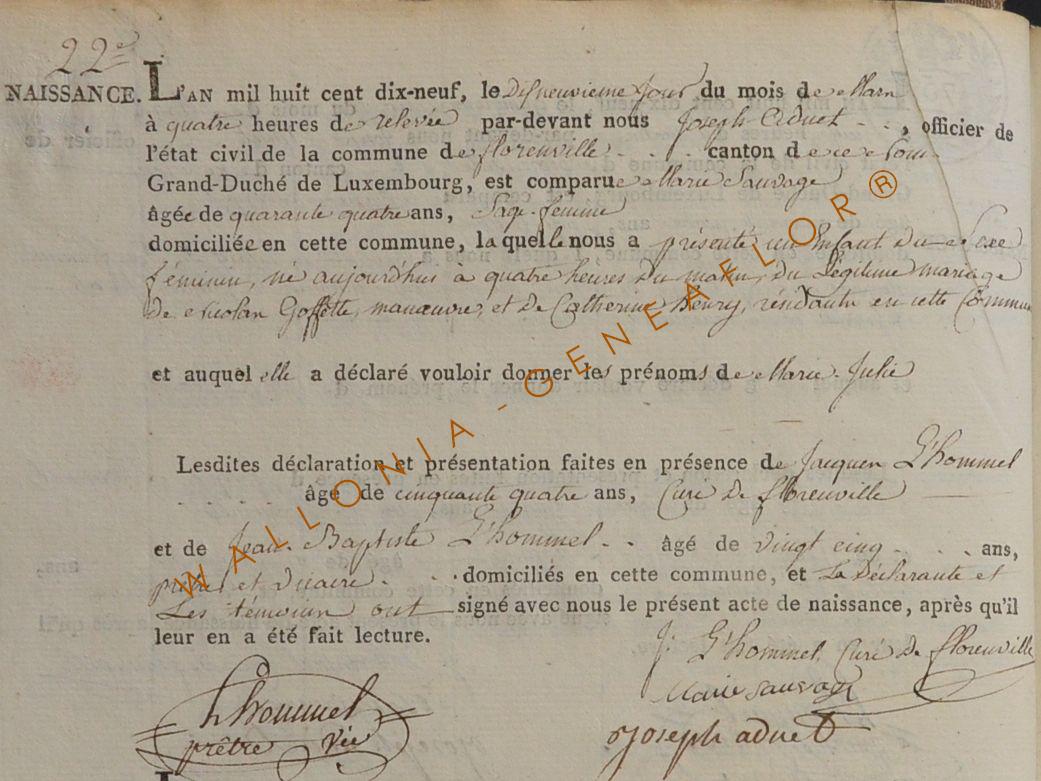 22e
NAISSANCE. L'AN mil huit cent dix-neuf, le dixneuvieme jour du mois de Mars
à quatre heures de relevée par-devant nous Joseph Aduet . . , officier de
l'état civil de la commune de florenville . . . canton de ce Nom
Grand-Duché de Luxembourg, est comparue Marie Sauvage
âgée de quarante quatre ans, Sage-femme
domiciliée en cette commune, laquelle nous a présenté un Enfant du Sexe
féminin, né aujourd'hui à quatre heures du matin, du Légitime mariage
de Nicolas Goffette, manœuvre, et de Catherine Henry, résidante en cette Commune
et auquel elle a déclaré vouloir donner les prénoms de Marie Julie
Lesdites déclaration et présentation faites en présence de Jacques L'hommel
âgé de cinquante quatre ans, Curé de florenville
et de Jean-Baptiste L'hommel . . âgé de vingt cinq . . . ans,
prêtre et vicaire . . . domiciliés en cette commune, et La Déclarante et
Les témoins ont signé avec nous le présent acte de naissance, après qu'il
leur en a été fait lecture.
J. L'hommel, Curé de florenville
Marie Sauvage
Lhommel
prêtre vic
joseph aduet
WALLONIA-GENEAFLOR®